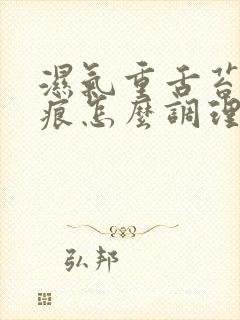 濕氣重舌苔
痕怎麼調理
弘邦